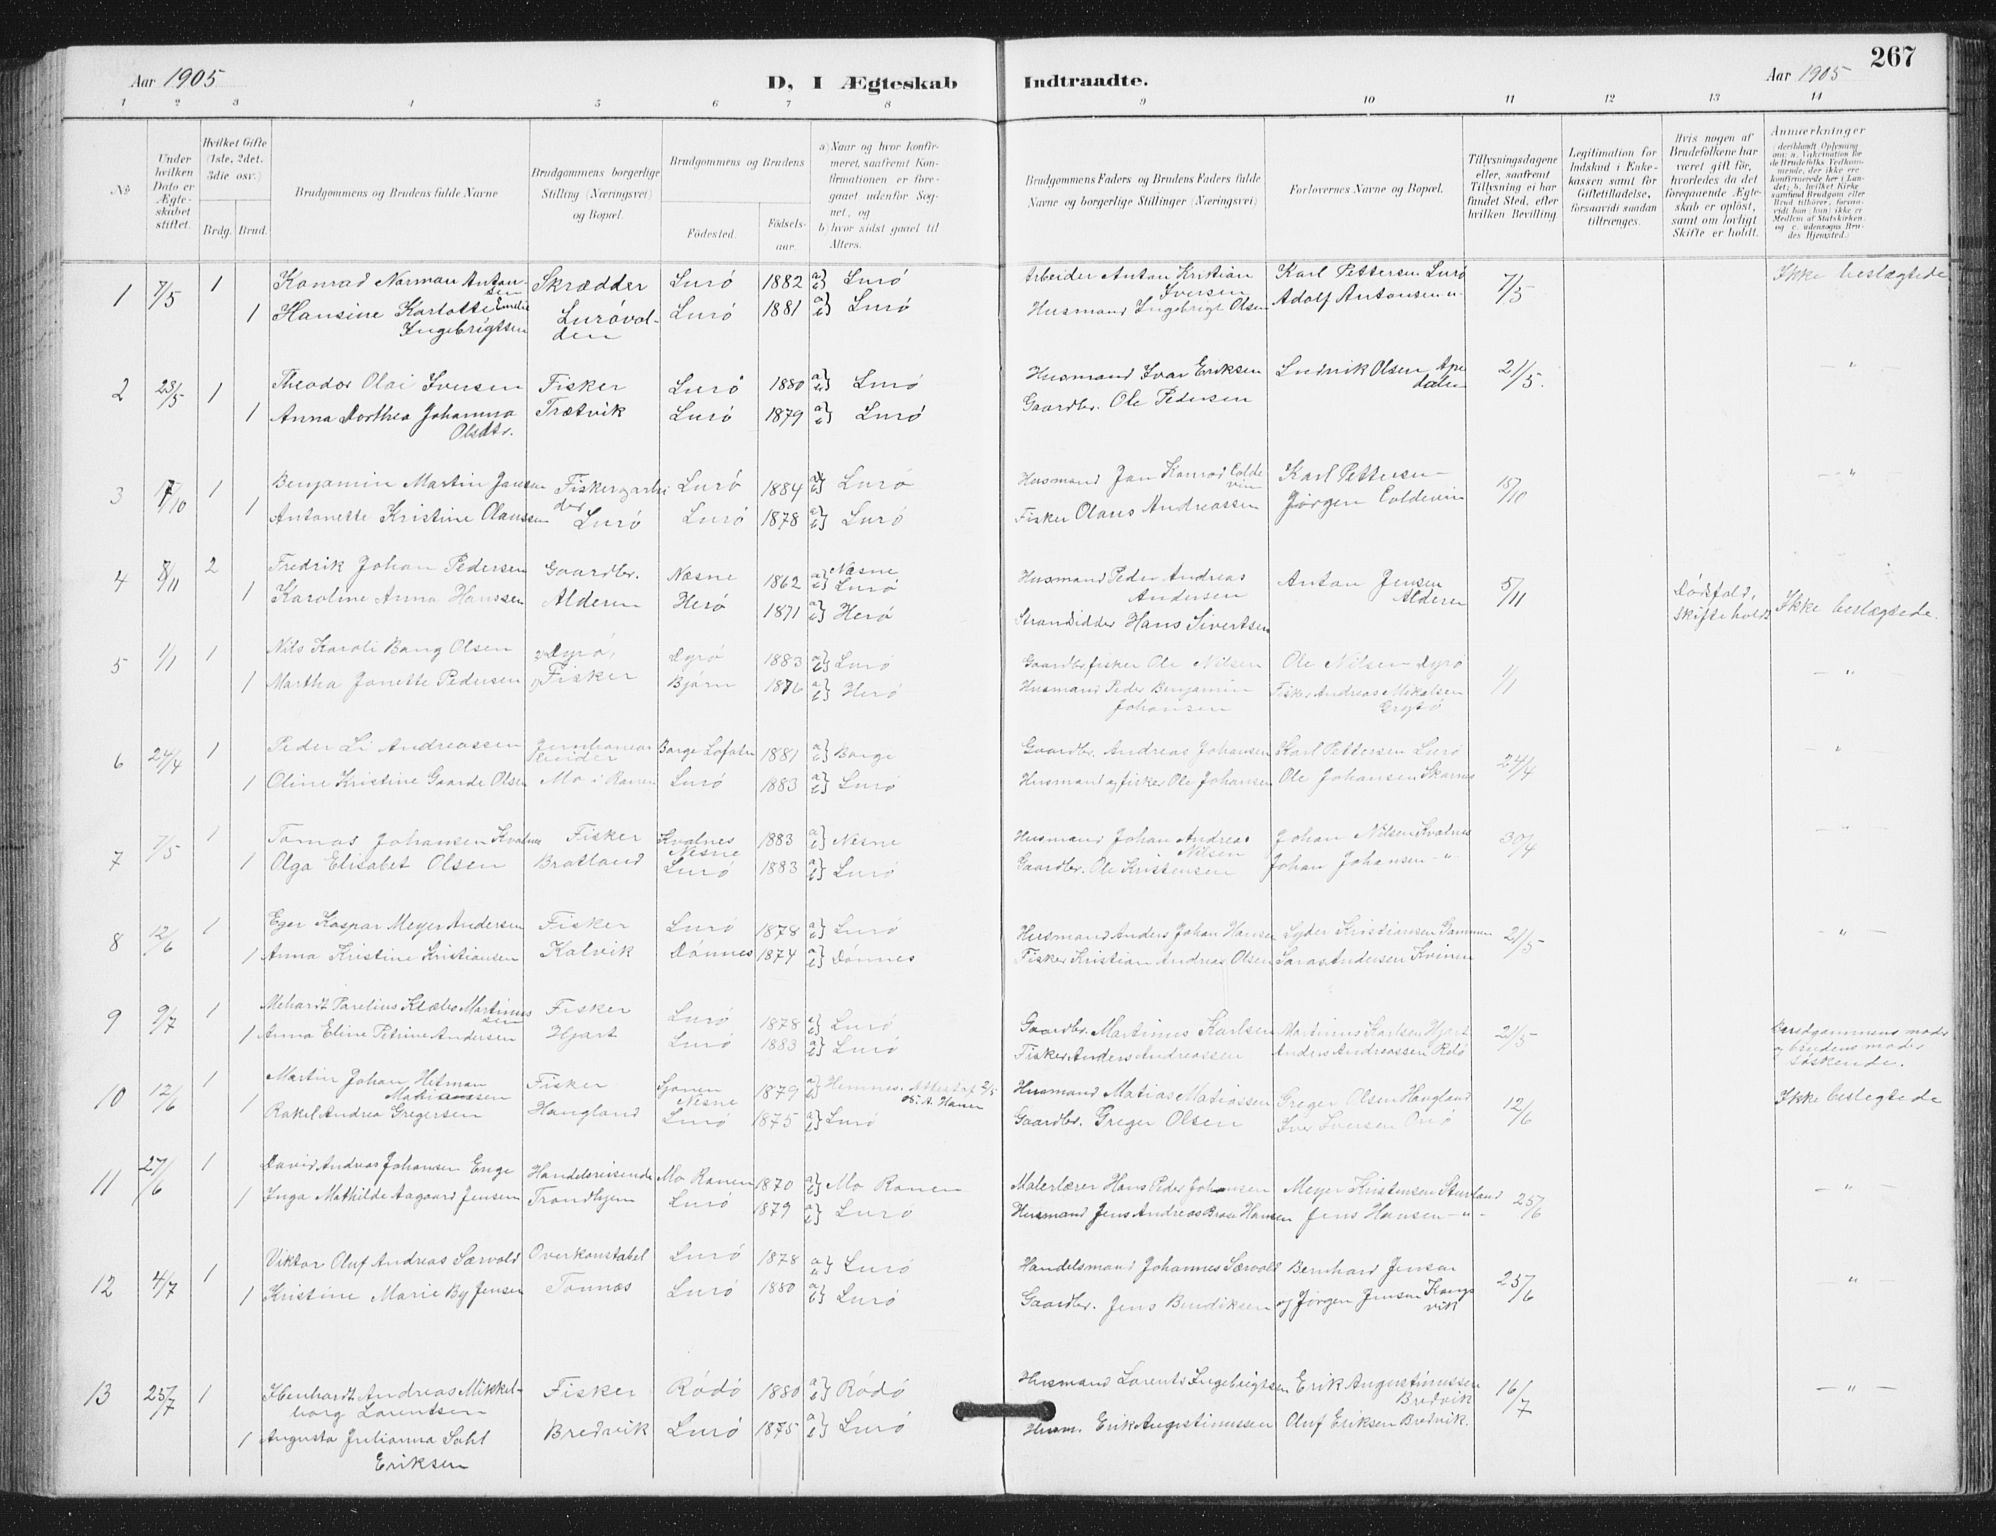 267
Aar 1905
D, I Ægteskab Indtraadte.
Aar 1905
1 2 3 4 5 6 7 8 9 10 11 12 13 14
No
Under hvilken Dato er Ægteskabet stiftet.
Hvilket Gifte (1ste, 2det, 3die osv.)
Brdg. Brud.
Brudgommens og Brudens fulde Navne
Brudgommens borgerlige Stilling (Næringsvei) og Bopæl.
Brudgommens og Brudens
Fødested.
Fødsels-aar.
a) Naar og hvor konfirmeret, saafremt Konfirmationen er foregaaet udenfor Sognet, og
b) hvor sidst gaaet til Alters.
Brudgommens Faders og Brudens Faders fulde Navne og borgerlige Stillinger (Næringsvei)
Forlovernes Navne og Bopæl.
Tillysningsdagene eller, saafremt Tillysning ei har fundet Sted, efter hvilken Bevilling
Legitimation for Indskud i Enkekassen samt for Giftetilladelse, forsaavidt saadan tiltrænges.
Hvis nogen af Brudefolkene har været gift før, hvorledes da det foregaaende Ægteskab er opløst, samt om lovligt Skifte er holdt.
Anmærkninger (deriblandt Oplysning om: a. Vakcination for de Brudefolks Vedkommende, der ikke ere konfirmerede her i Landet; b. hvilket Kirkesamfund Brudgom eller Brud tilhører, forsaavidt han (hun) ikke er Medlem af Statskirken, og c. udensogns Brudes Hjemsted.)
1 7/5 1 Konrad Norman Antonsen Skrædder Lurö 1882 a) b) Lurö Arbeider Anton Kristian Iversen Karl Pettersen Lurö 7/5 Ikke beslægtede
1 Hansine Karlotte Emilie Ingebrigtsen Lurövolden Lurö 1881 a) b) Lurö Husmand Ingebrigt Olsen Adolf Antonsen "
2 28/5 1 Theodor Olai Iversen Fisker Lurö 1880 a) b) Lurö Husmand Ivar Eriksen Ludvik Olsen Apedalen 21/5. - " -
1 Anna Dorthea Johanna Olsdtr. Trætvik Lurö 1879 a) b) Lurö Gaardbr. Ole Pedersen
3 1 Benjamin Martin Jansen Fisker og arbeider Lurö 1884 a) b) Lurö Husmand Jan Konrad Coldevin Karl Pettersen - 15/10 - " -
1 Antonette Kristine Olaussen Lurö Lurö 1878 a) b) Lurö Fisker Olaus Andreassen Jørgen Coldevin
4 8/11 2 Fredrik Johan Pedersen Gaardbr. Næsne 1862 a) Næsne b) Lurö Husmand Peder Andreas Andersen Anton Jensen Alderen 5/11 Dødsfald, skifte holdt Ikke beslægtede.
1 Karoline Anna Hanssen Alderen Herö 1871 a) b) Herö Strandsidder Hans Sivertsen
5 1/1 1 Nils Karoli Bang Olsen Dyrö, Dyrö 1883 a) b) Lurö Gaardbr. fisker Ole Nilsen Ole Nilsen Dyrö 1/1 - " -
1 Martha Jonette Pedersen Fisker Bjørn 1876 a) b) Herö Husmand Peder Benjamin Johansen Fisker Andreas Mikalsen
6 24/4 1 Peder Li Andreassen Borge Lofoten 1881 a) b) Borge Gaardbr. Andreas Johansen Karl Pettersen Lurö 24/4 "
1 Oline Kristine Gaarde Olsen Mo i Ranen Lurö 1883 a) b) Lurö Husmand og fisker Ole Johansen Ole Johansen Skarnes
7 7/5 1 Tomas Johansen Kvalnes Fisker Kvalnes Nesne 1883 a) b) Nesne Husmand Johan Andreas Nilsen Johan Nilsen Kvalnes 30/4 - " -
1 Olga Elisabet Olsen Bratland Lurö 1883 a) b) Lurö Gaardbr. Ole Kristensen Johan Johansen - " -
8 12/6 1 Eger Kaspar Meyer Andersen Fisker Lurö 1878 a) b) Lurö Husmand Anders Johan Hansen Lyder Kristiansen 21/5 - " -
1 Anna Kristine Kristiansen Kalvik Dönnes 1874 a) b) Dönnes Fisker Kristian Andreas Olsen Andersen Kvinen
9 9/7 1 Mehardt Parelius Klæbo Martinussen Fisker Lurö 1878 a) b) Lurö Gaardbr. Martinus Karlsen Martinus Karlsen Hjart 21/5 Brudgommens moder og brudens moder søskende.
1 Anna Eline Petrine Andersen Hjart Lurö 1883 a) b) Lurö Fisker Anders Andreassen Anders Andreassen Rolö
10 12/6 1 Martin Johan Hitman Mathiassen Fisker Nesne 1879 a) b) Hemnes. Attest af 2/5 Husmand Matias Matiassen Greger Olsen Haugland 12/6 Ikke beslegtede
1 Rakel Andrea Gregersen Haugland Lurö 1875 a) b) Lurö Gaardbr. Greger Olsen Iver Iversen Onö
11 27/6 1 David Andreas Johansen Enge Handelsreisende Mo Ranen 1870 a) b) Mo Ranen Malerlærer Hans Peder Johansen Meyer Kristensen Stuvland 25/6 - " -
1 Inga Mathilde Aagaard Jensen Trondhjem Lurö 1879 a) b) Lurö Husmand Jens Andreas Brose Hansen Jens Hansen - " -
12 4/7 1 Viktor Oluf Andreas Særvold Overkonstabel Lurö 1878 a) Lurö Handelsmand Johannes Særvold Bernhard Jensen 25/6 - " -
1 Kristine Marie By Jensen Tonnæs Lurö 1880 a) b) Lurö Gaardbr. Jens Bendiksen og Jørgen Jensen Kangsvik
13 25/7 1 Henhardt Andreas Mikkelborg Lorentsen Fisker Rödö 1880 a) b) Rödö Husmand Lorents Ingebrigtsen Erik Augustinussen Bredvik 16/7 - " -
1 Augusta Julianna Dahl Eriksen Bredvik Lurö 1875 a) b) Lurö Husm. Erik Augustinussen Oluf Eriksen Bredvik.